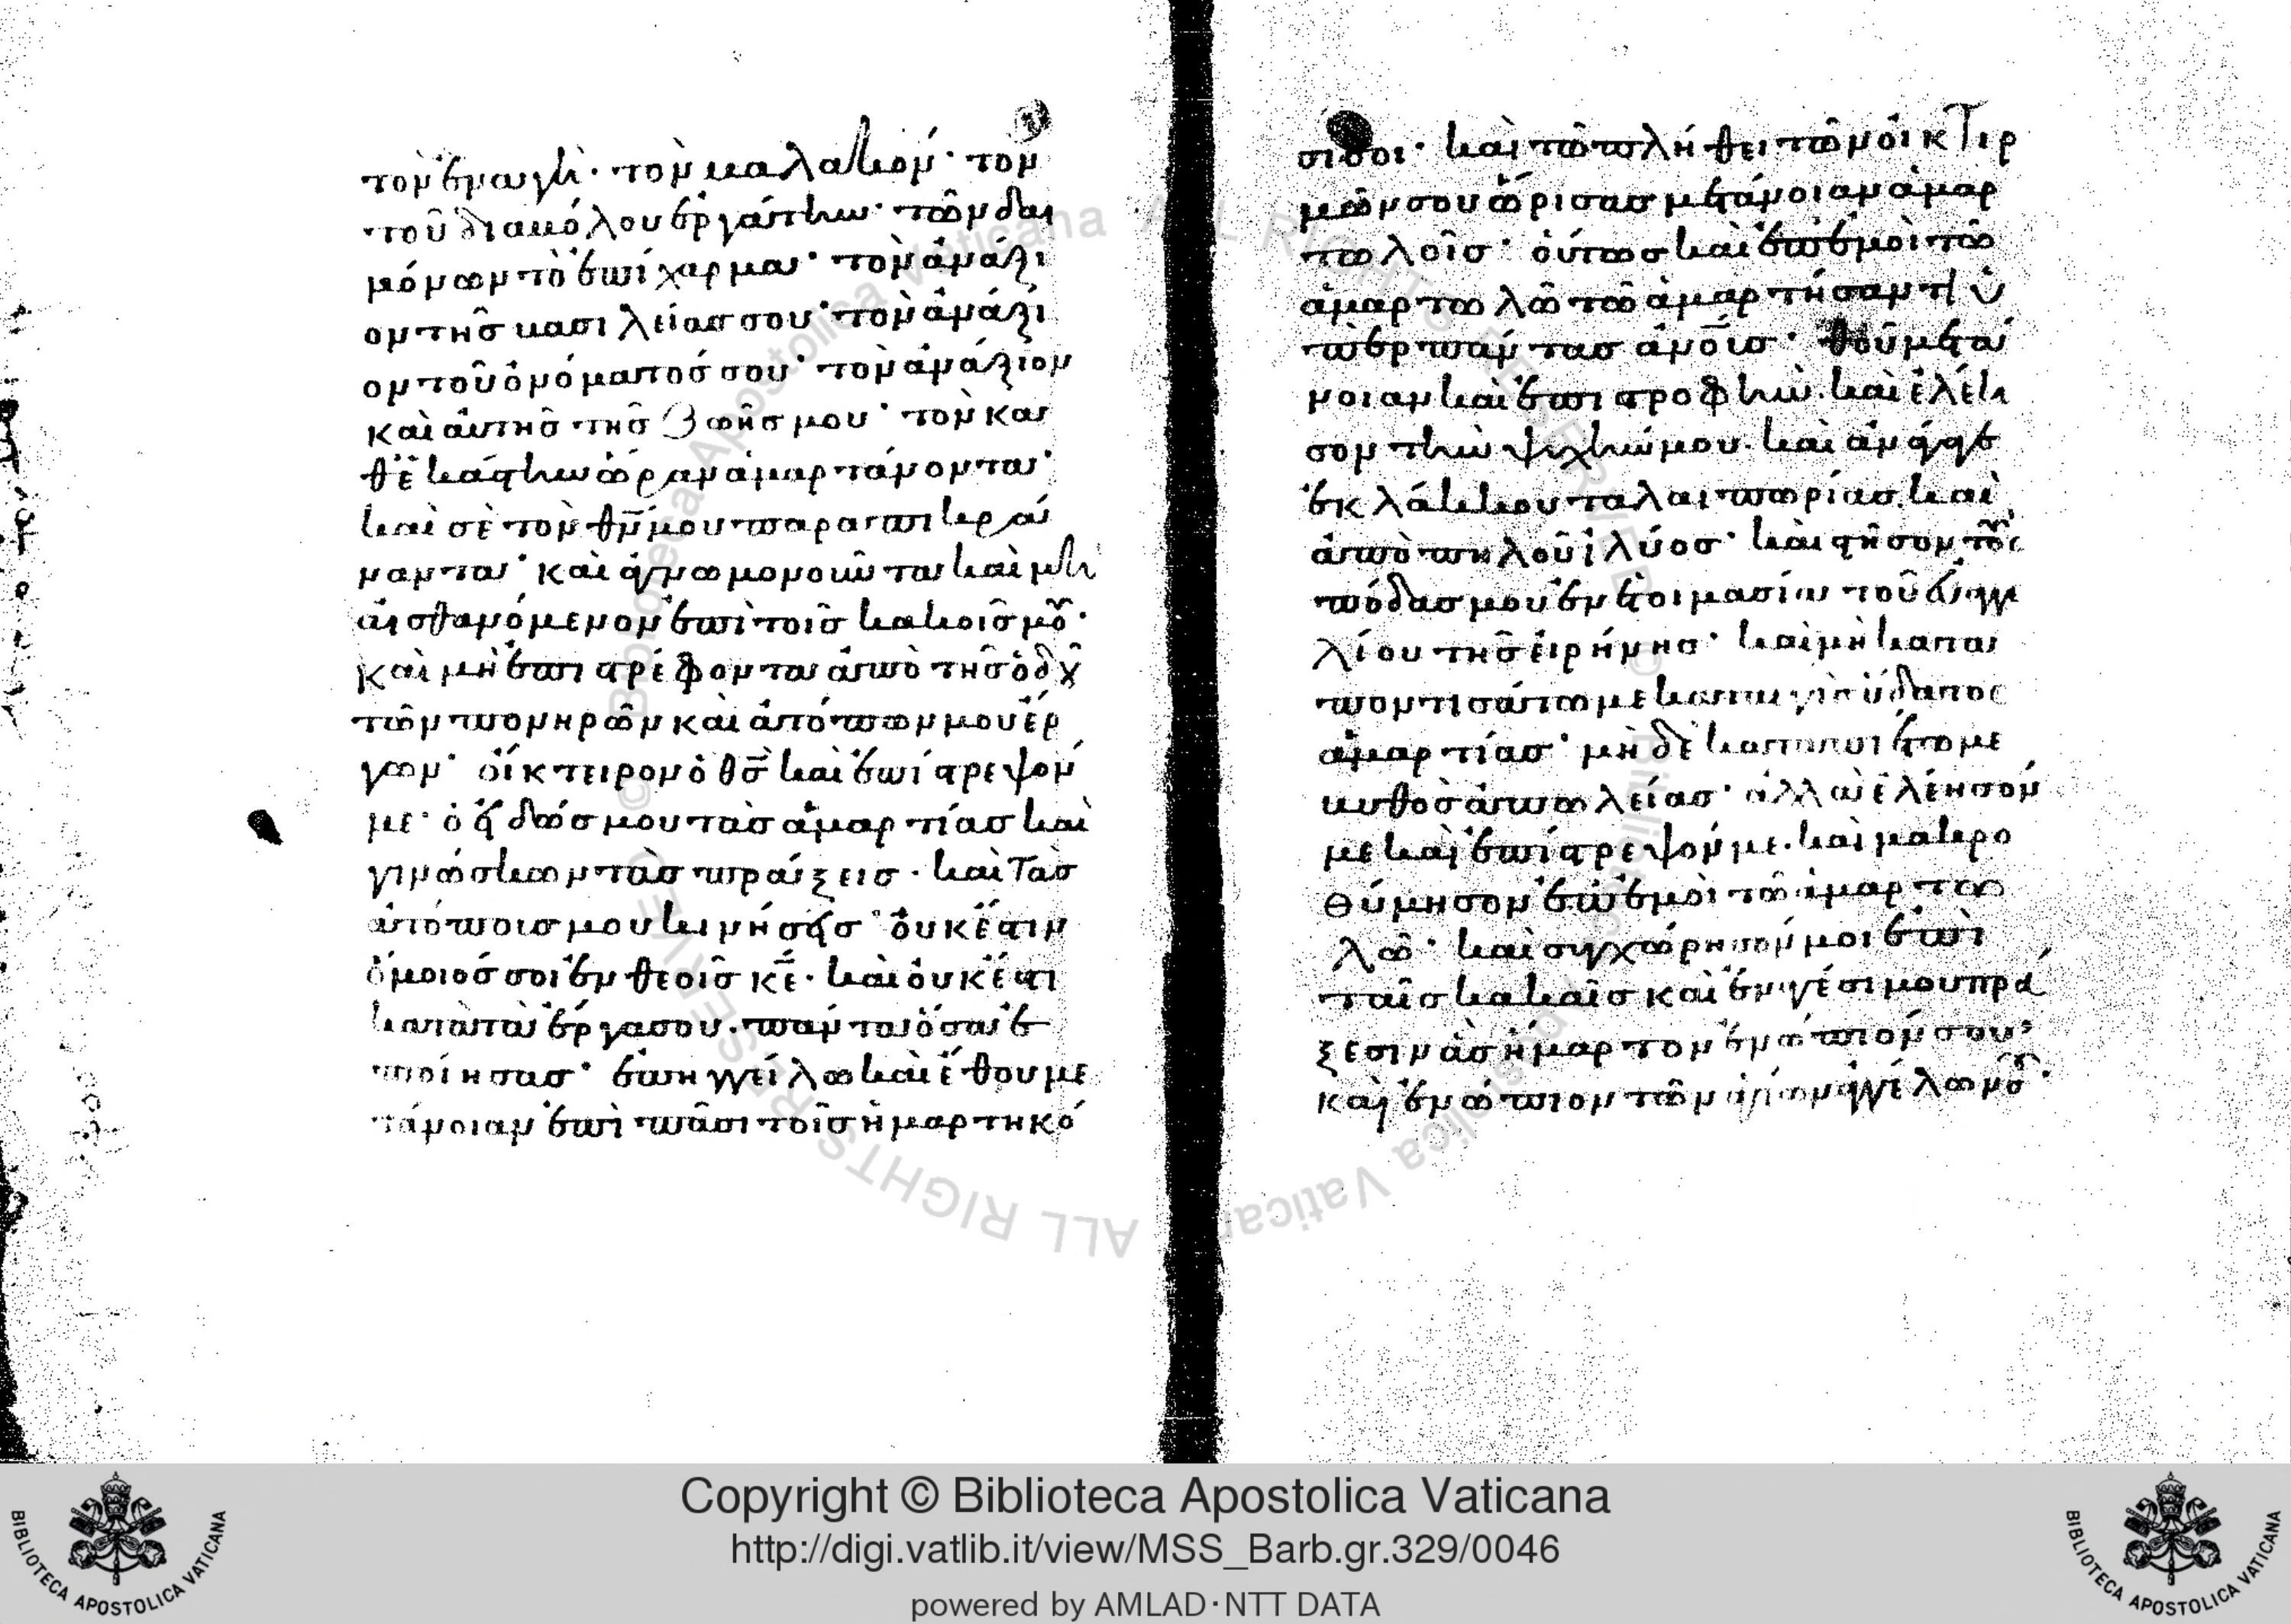 τὸν ἐναγῆ· τὸν μαλακόν· τὸν
τοῦ διακόλου ἐργάτην· τῶν δαι
μόνων τὸ ἐπίχαρμα· τὸν ἀνάξι
ον τῆς βασιλείας σου· τὸν ἀνάξι
ον τοῦ ὀνόματός σου· τὸν ἀνάξιον
καὶ αὐτῆς τῆς ζωῆς μου· τὸν κα
θἑκάστην ὥραν ἁμαρτάνοντα·
καὶ σὲ τὸν θν μου παραπικραί
ναντα· καὶ ἀγνωμονοῦντα καὶ μὴ
αἰσθανόμενον ἐπὶ τοῖς κακοῖς μου·
καὶ μὴ ἐπιστρέφοντα ἀπὸ τῆς ὁδοῦ
τῶν πονηρῶν καὶ ἀτόπων μου ἔρ
γων· οἴκτειρον ὁ θς καὶ ἐπίστρεψόν
με· ὁ εἰδώς μου τὰς ἁμαρτίας καὶ
γινώσκων τὰς πράξεις· καὶ τὰς
ἀτόποις μου κινήσεις· οὐκ ἔστιν
ὅμοιός σοι ἐν θεοῖς κε· καὶ οὐκ ἔστι
κατὰ τὰ ἔργα σου· πάντα ὅσα ἐ
ποίησας· ἐπηγγείλω καὶ ἔθου με
τάνοιαν ἐπὶ πᾶσι τοῖς ἡμαρτηκό
σι σοι· καὶ τῶ πλήθει τῶν οἰκτιρ
μῶν σου ὥρισας μετάνοιαν ἁμαρ
τωλοῖς· οὕτως καὶ ἐπ ἐμοὶ τῶ
ἁμαρτωλῶ τῶ ἁμαρτήσαντι ὑ
πὲρ πάντας ἀνοις· θοῦ μετά
νοιαν καὶ ἐπιστροφήν· καὶ ἐλέη
σον τὴν ψυχήν μου· καὶ ἀνάγαγε
ἐκ λάκκου ταλαιπωρίας· καὶ
ἀπὸ πηλοῦ ἰλύος· καὶ στῆσον τοὺς
πόδας μου ἐν ἑτοιμασία τοῦ εὐαγγε
λίου τῆς εἰρήνης· καὶ μὴ κατα
ποντισάτω με καταιγὶς ὕδατος
ἁμαρτίας· μὴ δὲ καταπιέτω με
βυθὸς ἀπωλείας· ἀλλὰ ἐλέησόν
με καὶ ἐπίστρεψόν με· καὶ μακρο
θύμησον ἐπ ἐμοὶ τῶ ἁμαρτω
λῶ· καὶ συγχώρησόν μοι ἐπὶ
ταῖς κακαῖς καὶ ἐναγέσι μου πρά
ξεσιν ἃς ἥμαρτον ἐνώπιόν σου·
καὶ ἐνώπιον τῶν ἁγίων ἀγγέλων σου·
Copyright © Biblioteca Apostolica Vaticana
http://digi.vatlib.it/view/MSS_Barb.gr.329/0046
powered by AMLAD·NTT DATA
BIBLIOTECA APOSTOLICA VATICANA
BIBLIOTECA APOSTOLICA VATICANA